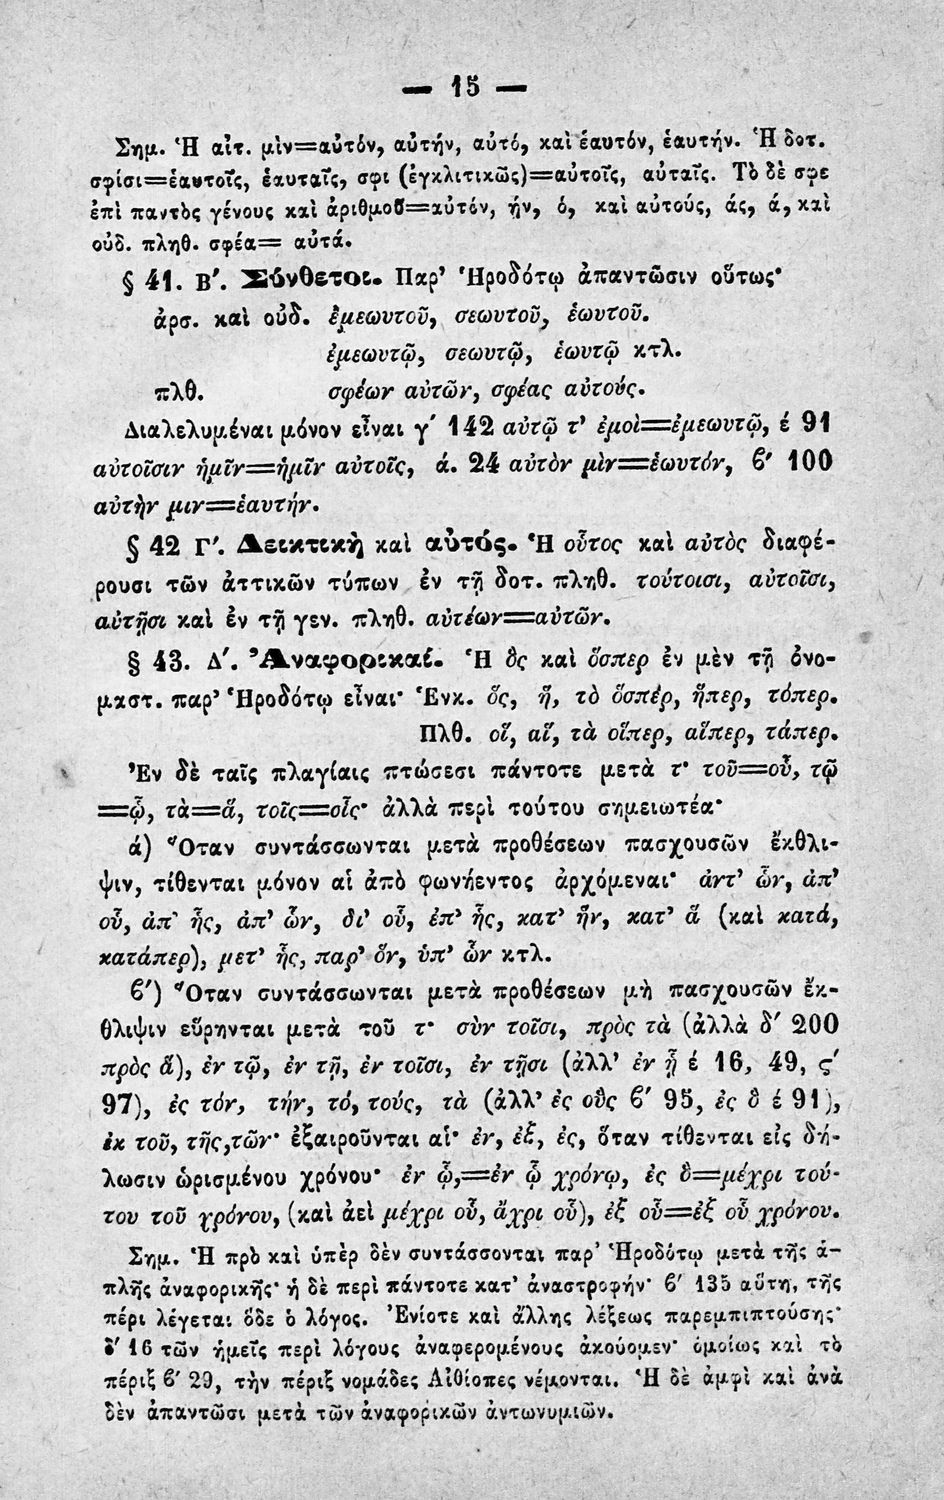 — 15 —
Σημ. Ἡ αἰτ. μὶν=αὐτόν, αὐτήν, αὐτό, καὶ ἑαυτόν, ἑαυτήν. Ἡ δοτ.
σφίσι=ἑαυτοῖς, ἑαυταῖς, σφι (ἐγκλιτικῶς)=αὐτοῖς, αὐταῖς. Τὸ δὲ σφε
ἐπὶ παντὸς γένους καὶ ἀριθμοῦ=αὐτόν, ήν, ό, καὶ αὐτούς, άς, ά, καὶ
οὐδ. πληθ. σφέα= αὐτά.
§ 41. Β΄. Σύνθετοι. Παρ’ Ἡροδότῳ ἀπαντῶσιν οὕτως·
ἀρσ. καὶ οὐδ. ἐμεωυτοῦ, σεωυτοῦ, ἑωυτοῦ.
ἐμεωυτῷ, σεωυτῷ, ἑωυτῷ κτλ.
πλθ. σφέων αὐτῶν, σφέας αὐτούς.
Διαλελυμέναι μόνον εἶναι γ΄ 142 αὐτῷ τ’ ἐμοὶ=ἐμεωυτῷ, έ 91
αὐτοῖσιν ἡμῖν=ἡμῖν αὐτοῖς, ά. 24 αὐτὸν μὶν=ἑωυτόν, β΄ 100
αὐτὴν μιν=ἑαυτήν.
§ 42 Γ΄. Δεικτικὴ καὶ αὐτός. Ἡ οὗτος καὶ αὐτὸς διαφέ-
ρουσι τῶν ἀττικῶν τύπων ἐν τῇ δοτ. πληθ. τούτοισι, αὐτοῖσι,
αὐτῇσι καὶ ἐν τῇ γεν. πληθ. αὐτέων=αὐτῶν.
§ 43. Δ΄. Ἀναφορικαί. Ἡ ὃς καὶ ὅσπερ ἐν μὲν τῇ ὀνο-
μαστ. παρ’ Ἡροδότῳ εἶναι· Ἑνκ. ὅς, ἥ, τὸ ὅσπέρ, ἥπερ, τόπερ.
Πλθ. οἵ, αἵ, τὰ οἵπερ, αἵπερ, τάπερ.
Ἐν δὲ ταῖς πλαγίαις πτώσεσι πάντοτε μετὰ τ· τοῦ=οὗ, τῷ
=ᾧ, τὰ=ἅ, τοῖς=οἷς· ἀλλὰ περὶ τούτου σημειωτέα·
ά) Ὅταν συντάσσωνται μετὰ προθέσεων πασχουσῶν ἔκθλι-
ψιν, τίθενται μόνον αἱ ἀπὸ φωνήεντος ἀρχόμεναι· ἀντ’ ὧν, ἀπ’
οὗ, ἀπ’ ἧς, ἀπ’ ὧν, δι’ οὗ, ἐπ’ ἧς, κατ’ ἥν, κατ’ ἃ (καὶ κατά,
κατάπερ), μετ’ ἧς, παρ’ ὅν, ὑπ’ ὧν κτλ.
β΄) Ὅταν συντάσσωνται μετὰ προθέσεων μὴ πασχουσῶν ἔκ-
θλιψιν εὕρηνται μετὰ τοῦ τ· σὺν τοῖσι, πρὸς τὰ (ἀλλὰ δ΄ 200
πρὸς ἃ), ἐν τῷ, ἐν τῇ, ἐν τοῖσι, ἐν τῇσι (ἀλλ’ ἐν ᾗ έ 16, 49, ς΄
97), ἐς τόν, τήν, τό, τούς, τὰ (ἀλλ’ ἐς οὓς β΄ 95, ἐς ὃ έ 91),
ἐκ τοῦ, τῆς, τῶν· ἐξαιροῦνται αἱ· ἐν, ἐξ, ἐς, ὅταν τίθενται εἰς δή-
λωσιν ὡρισμένου χρόνου· ἐν ᾧ,=ἐν ᾧ χρόνῳ, ἐς ὃ=μέχρι τού-
του τοῦ χρόνου, (καὶ ἀεὶ μέχρι οὗ, ἄχρι οὗ), ἐξ οὗ=ἐξ οὗ χρόνου.
Σημ. Ἡ πρὸ καὶ ὑπὲρ δὲν συντάσσονται παρ’ Ἡροδότῳ μετὰ τῆς ἁ-
πλῆς ἀναφορικῆς· ἡ δὲ περὶ πάντοτε κατ’ ἀναστροφήν· β΄ 135 αὕτη, τῆς
πέρι λέγεται ὅδε ὁ λόγος. Ἐνίοτε καὶ ἄλλης λέξεως παρεμπιπτούσης·
δ΄ 16 τῶν ἡμεῖς περὶ λόγους ἀναφερομένους ἀκούομεν· ὁμοίως καὶ τὸ
πέριξ β΄ 29, τὴν πέριξ νομάδες Αἰθίοπες νέμονται. Ἡ δὲ ἀμφὶ καὶ ἀνὰ
δὲν ἀπαντῶσι μετὰ τῶν ἀναφορικῶν ἀντωνυμιῶν.